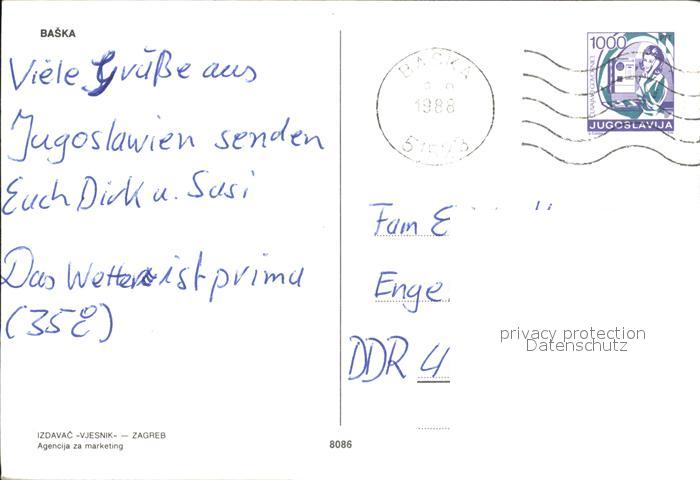 BAŠKA
Viele Grüße aus
Jugoslawien senden
Euch Dirk u. Susi
Das Wetter ist prima
(35°C)
IZDAVAČ «VJESNIK» — ZAGREB
Agencija za marketing
8086
BAŠKA
1988
1000
JUGOSLAVIJA
Fam E
Enge
DDR 4
privacy protection
Datenschutz